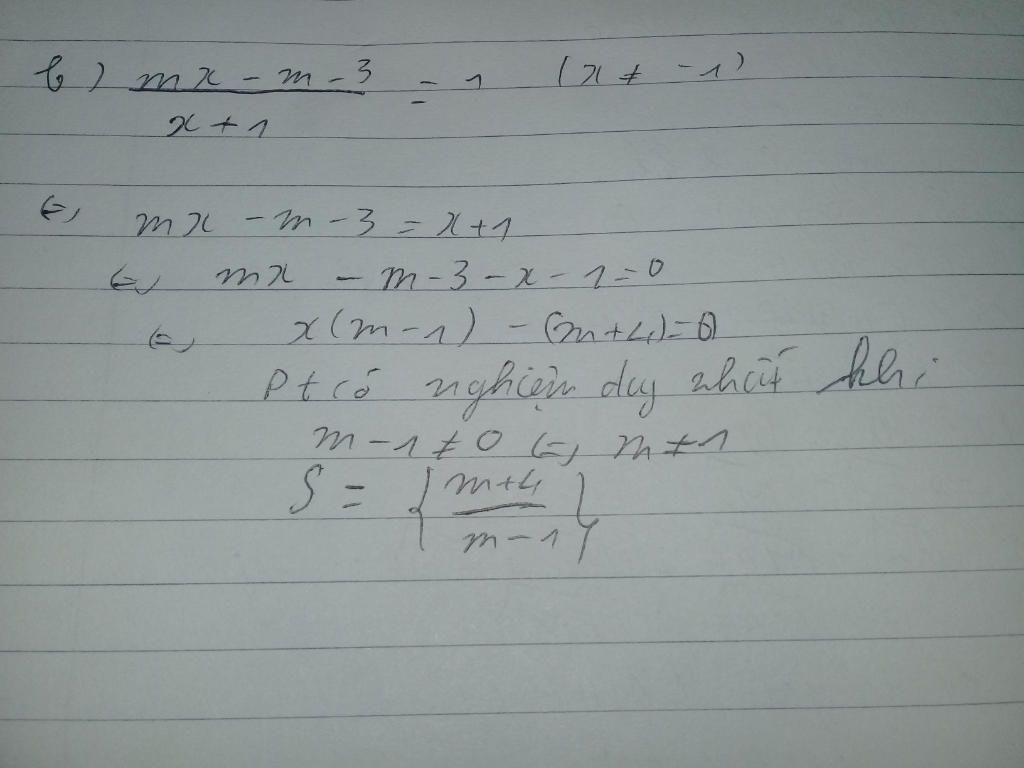 b) (mx - m - 3)/(x + 1) = 1 (x ≠ -1)
⇔ mx - m - 3 = x + 1
⇔ mx - m - 3 - x - 1 = 0
⇔ x(m - 1) - (m + 4) = 0
Pt có nghiệm duy nhất khi
m - 1 ≠ 0 ⇔ m ≠ 1
S = {(m+4)/(m-1)}